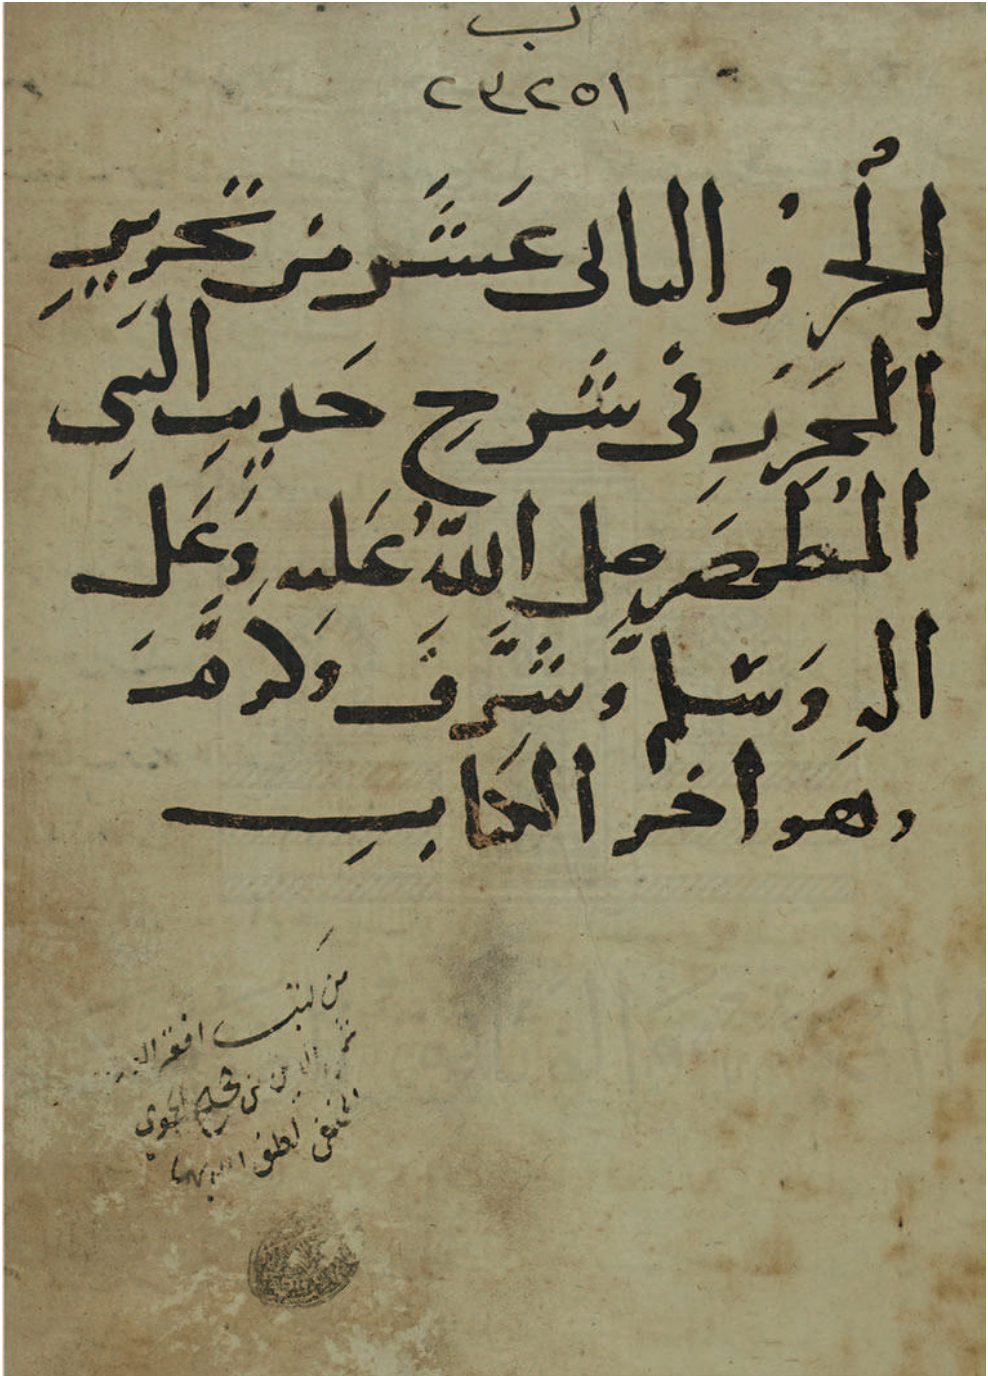 ب
٢٣٢٥١
الجزؤ الثانى عَشَر من تحرير
المحرر فى شرح حَديثِ النبِى
المُطهَر صلى اللهُ عَليه وَعَلى
الهِ وَسَلم وَشَرَّفَ وَكرَّمَ
وهو اخر الكتابِ
من كتب افقر
الدين بن الحموي
الحنفى لطف الله بهما